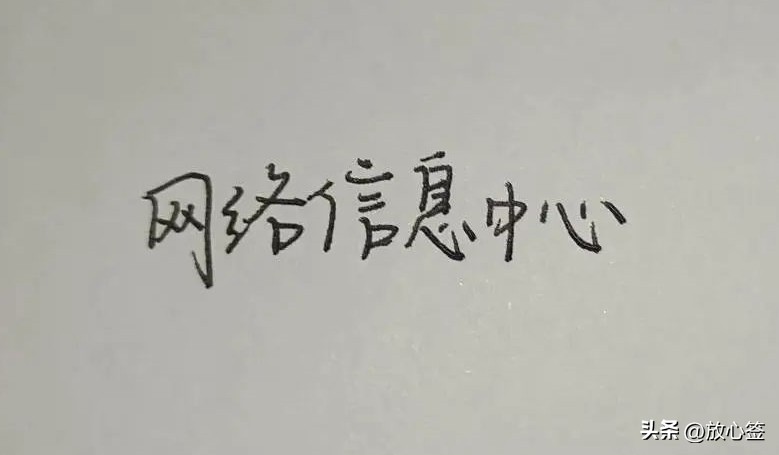 网络信息中心
头条 @放心签